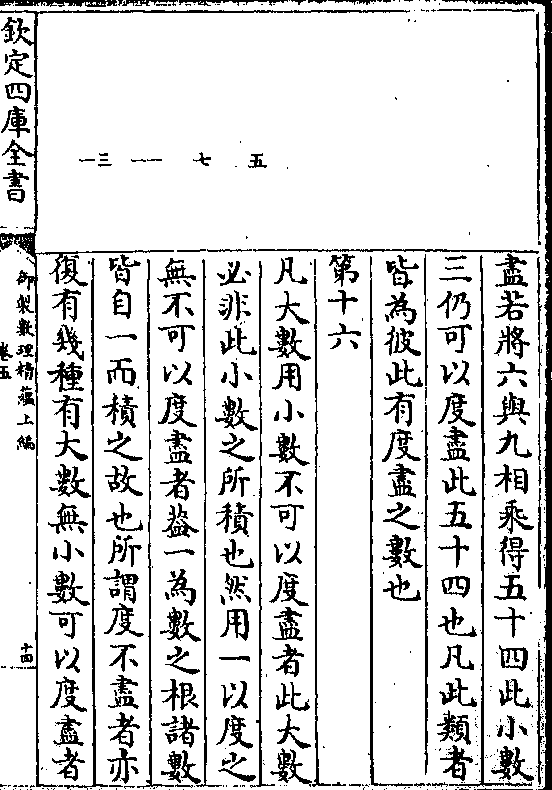 盡若將六與九相乘得五十四此小數
三仍可以度盡此五十四也凡此類者
皆為彼此有度盡之數也
第十六
凡大數用小數不可以度盡者此大數
必非此小數之所積也然用一以度之
無不可以度盡者葢一為數之根諸數
皆自一而積之故也所謂度不盡者亦
復有幾種有大數無小數可以度盡者
五
七
一一
一三
欽定四庫全書
御製數理精蘊上編
卷五
十四